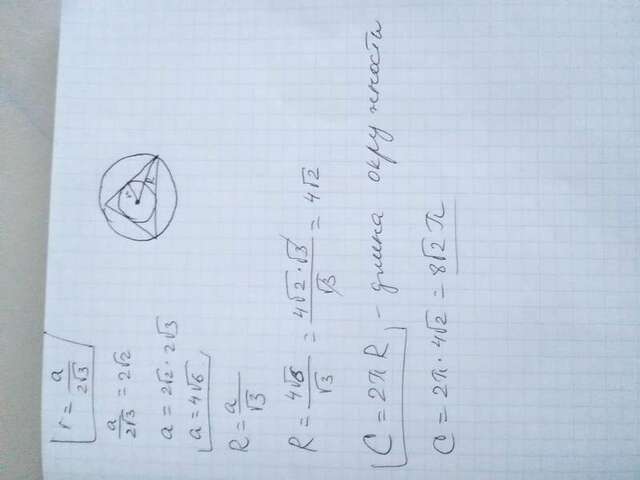 r = a/2√3
a/2√3 = 2√2
a = 2√2 · 2√3
a = 4√6
R = a/√3
R = 4√6/√3 = 4√2·√3/√3 = 4√2
C = 2πR - длина окружности
C = 2π · 4√2 = 8√2 π